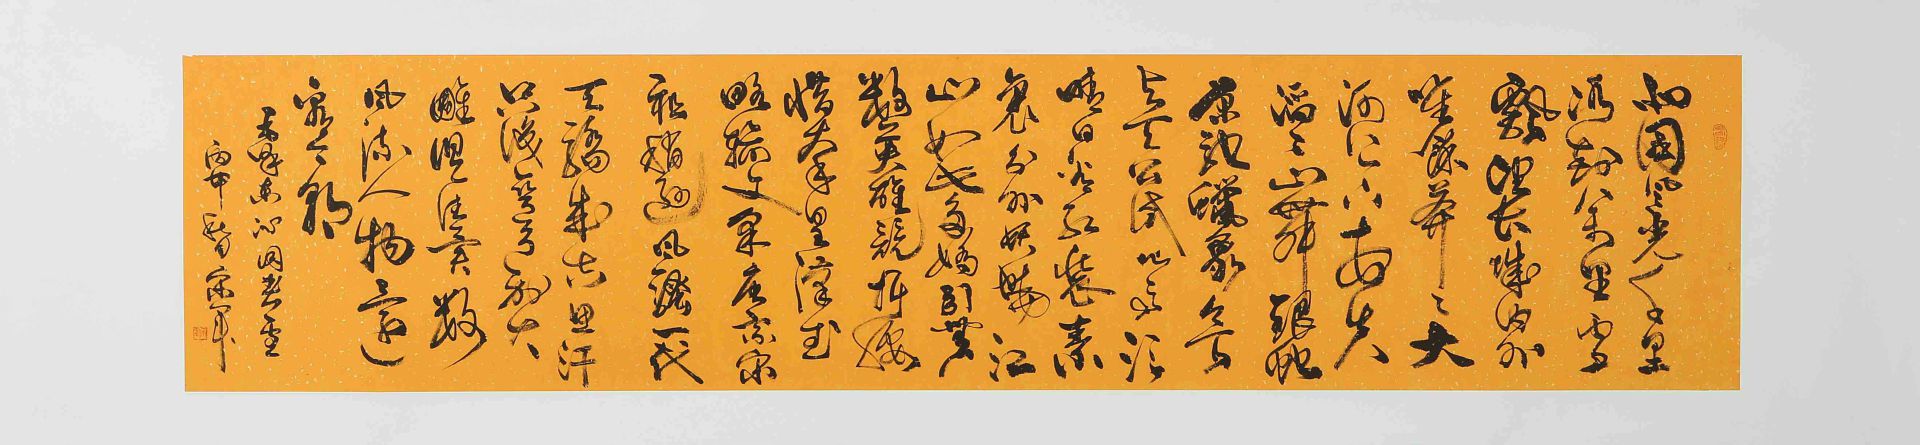 北国风光千里
冰封万里雪
飄望长城内外
唯餘莽莽大
河上下顿失
滔滔山舞銀蛇
原驰蠟象欲
与天公试比高须
晴日看红装素
裹分外妖娆江
山如此多娇引无
數英雄競折腰
惜秦皇漢武
略输文采唐宗宋
祖稍逊风骚一代
天骄成吉思汗
只识弯弓射大
雕俱往矣数
风流人物还
看今朝
毛泽东沁园春雪
丙申秋月